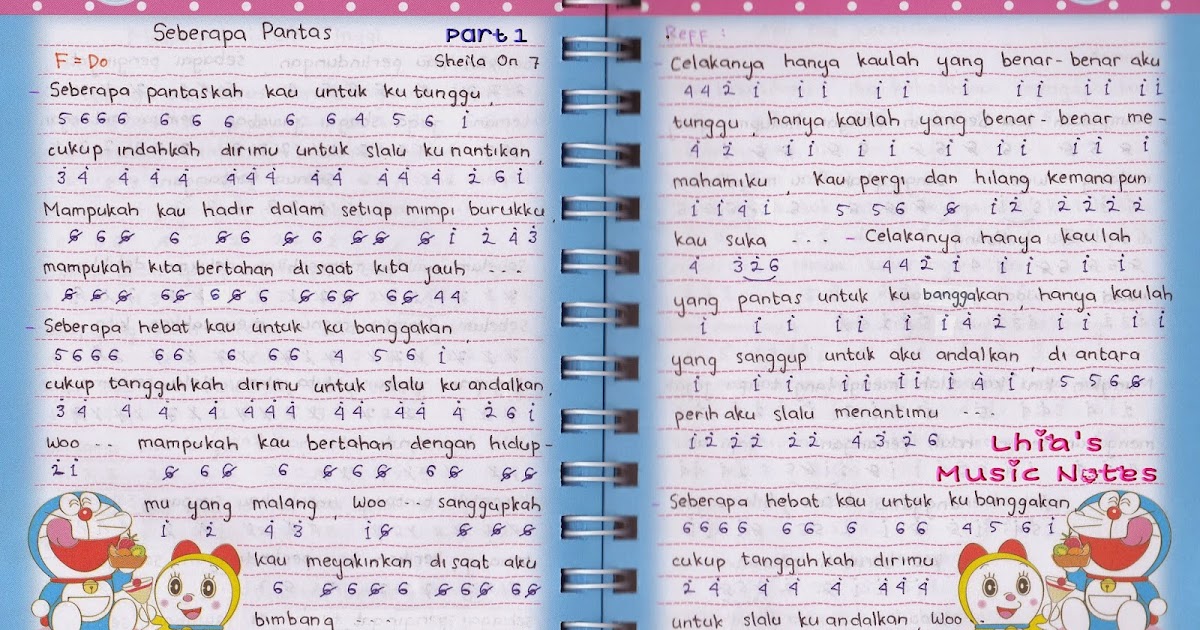 Seberapa Pantas Part 1
F = Do Sheila On 7
- Seberapa pantaskah kau untuk ku tunggu,
5 6 6 6 6 6 6 6 6 4 5 6 1̇
cukup indahkah dirimu untuk slalu ku nantikan,
3̇ 4̇ 4̇ 4̇ 4̇ 4̇ 4̇ 4̇ 4̇ 4̇ 4̇ 4̇ 4̇ 2̇ 6 1̇
Mampukah kau hadir dalam setiap mimpi burukku,
6̸ 6 6̸ 6 6̸ 6 6̸ 6 6̸ 6̸ 6̸ 1̇ 2̇ 4̇ 3̇
mampukah kita bertahan di saat kita jauh ...
6̸ 6̸ 6̸ 6 6̸ 6 6̸ 6 6̸ 6 6̸ 6 6̸ 4 4
- Seberapa hebat kau untuk ku banggakan,
5 6 6 6 6 6 6 6 6 4 5 6 1̇
cukup tangguhkah dirimu untuk slalu ku andalkan,
3̇ 4̇ 4̇ 4̇ 4̇ 4̇ 4̇ 4̇ 4̇ 4̇ 4̇ 4̇ 4̇ 2̇ 6 1̇
woo ... mampukah kau bertahan dengan hidup-
2̇ 1̇ 6̸ 6 6̸ 6 6̸ 6 6̸ 6 6̸ 6̸ 6̸
mu yang malang woo ... sanggupkah
1̇ 2̇ 4̇ 3̇ 1̇ 6̸ 6̸ 6̸ 6̸
kau meyakinkan di saat aku
6 6̸ 6̸ 6̸ 6 6̸ 6 6̸ 6 6̸
bimbang
Reff :
- Celakanya hanya kaulah yang benar-benar aku
4 4 2̇ 1̇ 1̇ 1̇ 1̇ 1̇ 1̇ 1̇ 1̇ 1̇ 1̇ 1̇ 1̇
tunggu, hanya kaulah yang benar-benar me-
4̇ 2̇ 1̇ 1̇ 1̇ 1̇ 1̇ 1̇ 1̇ 1̇ 1̇ 1̇
mahamiku kau pergi dan hilang kemanapun
1̇ 1̇ 4̇ 1̇ 5 5 6 6̸ 1̇ 2̇ 2̇ 2̇ 2̇ 2̇
kau suka ... - Celakanya hanya kaulah
4̇ 3̇ 2̇ 6 4 4 2̇ 1̇ 1̇ 1̇ 1̇ 1̇
yang pantas untuk ku banggakan hanya kaulah
1̇ 1̇ 1̇ 1̇ 1̇ 1̇ 1̇ 4̇ 2̇ 1̇ 1̇ 1̇ 1̇
yang sanggup untuk aku andalkan, di antara
1̇ 1̇ 1̇ 1̇ 1̇ 1̇ 1̇ 1̇ 4̇ 1̇ 5 5 6 6̸
perih aku slalu menantimu ...
1̇ 2̇ 2̇ 2̇ 2̇ 2̇ 4̇ 3̇ 2̇ 6
Lhia's
Music Notes
- Seberapa hebat kau untuk ku banggakan,
6 6 6 6 6 6 6 6 6 4 5 6 1̇
cukup tangguhkah dirimu
2̇ 4̇ 4̇ 4̇ 4̇ 4̇ 4̇ 4̇
untuk slalu ku andalkan, woo ...